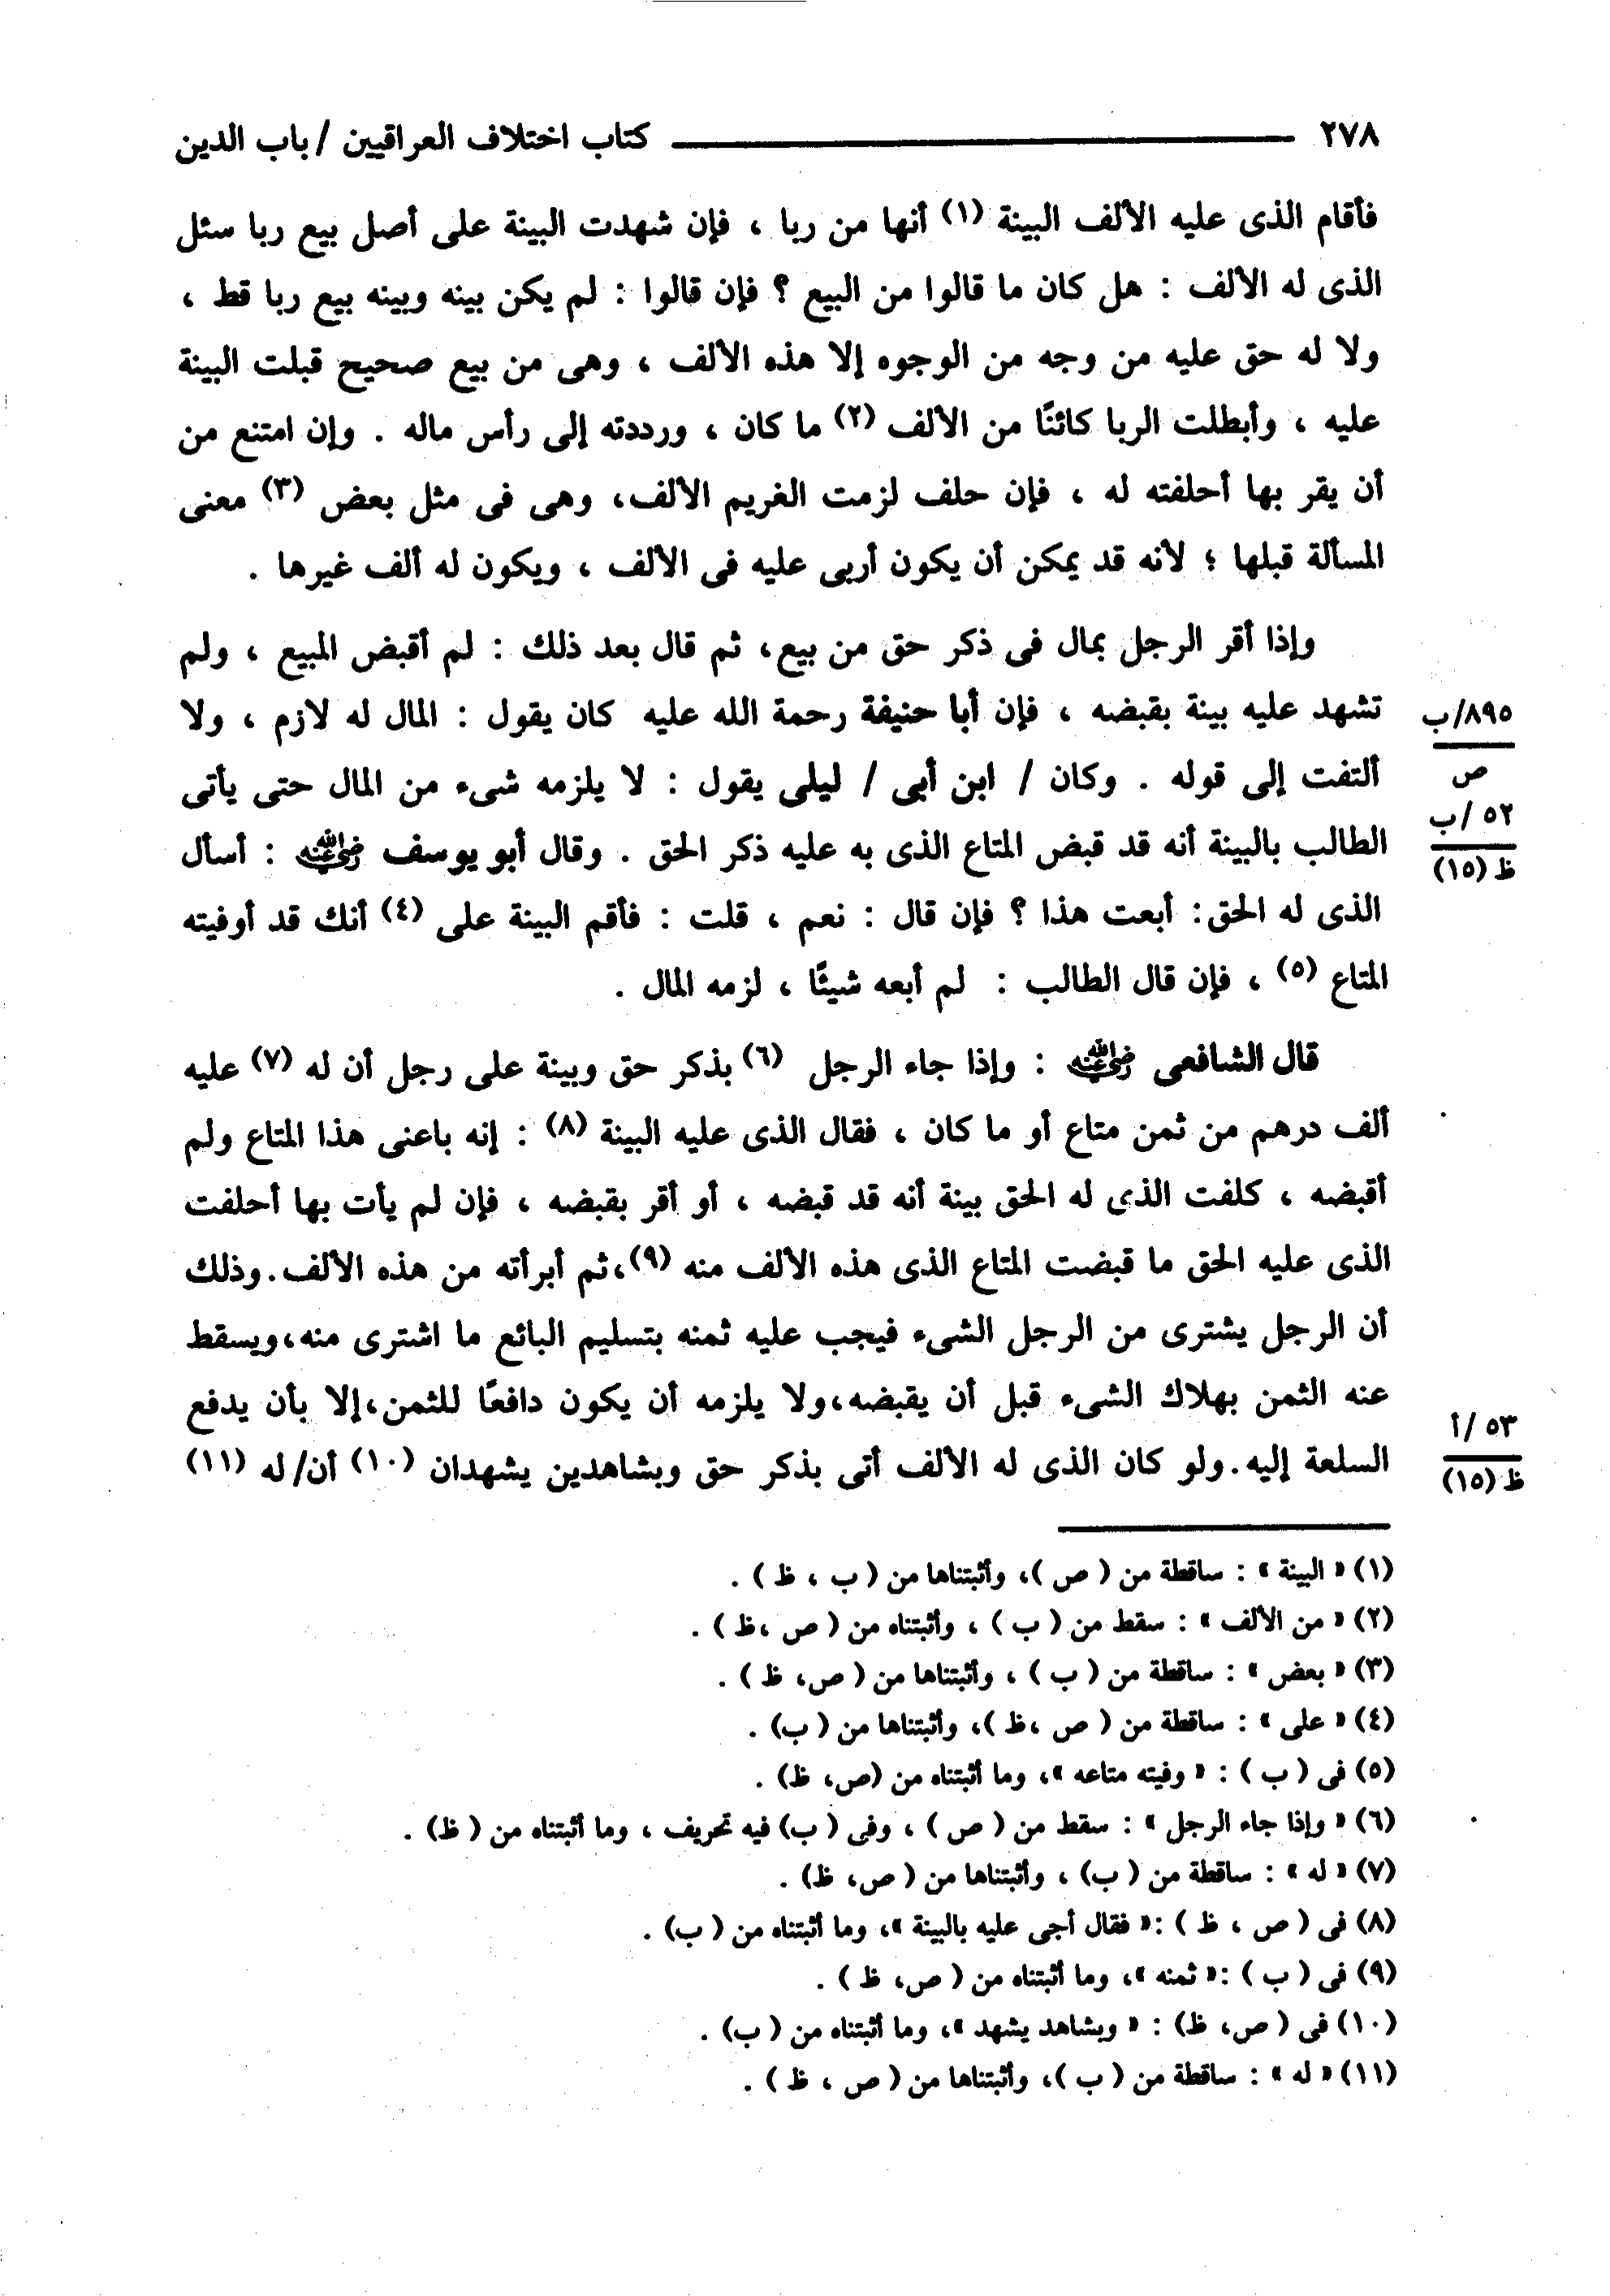 ٢٧٨ كتاب اختلاف العراقيين / باب الدين
فأقام الذى عليه الألف البينة (١) أنها من ربا ، فإن شهدت البينة على أصل بيع ربا سئل
الذى له الألف : هل كان ما قالوا من البيع ؟ فإن قالوا : لم يكن بينه وبينه بيع ربا قط ،
ولا له حق عليه من وجه من الوجوه إلا هذه الألف ، وهى من بيع صحيح قبلت البينة
عليه ، وأبطلت الربا كائنًا من الألف (٢) ما كان ، ورددته إلى رأس ماله . وإن امتنع من
أن يقر بها أحلفته له ، فإن حلف لزمت الغريم الألف، وهى فى مثل بعض (٣) معنى
المسألة قبلها ؛ لأنه قد يمكن أن يكون أربى عليه فى الألف ، ويكون له ألف غيرها .
وإذا أقر الرجل بمال فى ذكر حق من بيع، ثم قال بعد ذلك : لم أقبض المبيع ، ولم
تشهد عليه بينة بقبضه ، فإن أبا حنيفة رحمة الله عليه كان يقول : المال له لازم ، ولا
٨٩٥/ب
ألتفت إلى قوله . وكان / ابن أبى / ليلى يقول : لا يلزمه شىء من المال حتى يأتى
ص
٥٢ /ب
الطالب بالبينة أنه قد قبض المتاع الذى به عليه ذكر الحق . وقال أبو يوسف رضي الله عنه : أسأل
ظ (١٥)
الذى له الحق: أبعت هذا ؟ فإن قال : نعم ، قلت : فأقم البينة على (٤) أنك قد أوفيته
المتاع (٥) ، فإن قال الطالب : لم أبعه شيئًا ، لزمه المال .
قال الشافعى رضي الله عنه : وإذا جاء الرجل (٦) بذكر حق وبينة على رجل أن له (٧) عليه
ألف درهم من ثمن متاع أو ما كان ، فقال الذى عليه البينة (٨) : إنه باعنى هذا المتاع ولم
أقبضه ، كلفت الذى له الحق بينة أنه قد قبضه ، أو أقر بقبضه ، فإن لم يأت بها أحلفت
الذى عليه الحق ما قبضت المتاع الذى هذه الألف منه (٩)،ثم أبرأته من هذه الألف.وذلك
أن الرجل يشترى من الرجل الشىء فيجب عليه ثمنه بتسليم البائع ما اشترى منه،ويسقط
عنه الثمن بهلاك الشىء قبل أن يقبضه،ولا يلزمه أن يكون دافعًا للثمن،إلا بأن يدفع
٥٣ /أ
السلعة إليه.ولو كان الذى له الألف أتى بذكر حق وبشاهدين يشهدان (١٠) أن/ له (١١)
ظ (١٥)
(١) « البينة » : ساقطة من ( ص )، وأثبتناها من ( ب ، ظ ) .
(٢) « من الألف » : سقط من ( ب ) ، وأثبتناه من ( ص ،ظ ) .
(٣) « بعض » : ساقطة من ( ب ) ، وأثبتناها من ( ص، ظ ) .
(٤) « على » : ساقطة من ( ص ،ظ )، وأثبتناها من ( ب) .
(٥) فى ( ب ) : « وفيته متاعه »، وما أثبتناه من (ص، ظ) .
(٦) « وإذا جاء الرجل » : سقط من ( ص ) ، وفى ( ب) فيه تحريف ، وما أثبتناه من ( ظ) .
(٧) « له » : ساقطة من ( ب) ، وأثبتناها من ( ص، ظ) .
(٨) فى ( ص ، ظ ) :« فقال أجى عليه بالبينة »، وما أثبتناه من ( ب) .
(٩) فى ( ب ) :« ثمنه »، وما أثبتناه من ( ص، ظ ) .
(١٠) فى ( ص، ظ) : « وبشاهد يشهد »، وما أثبتناه من ( ب) .
(١١) « له » : ساقطة من ( ب )، وأثبتناها من ( ص ، ظ ) .